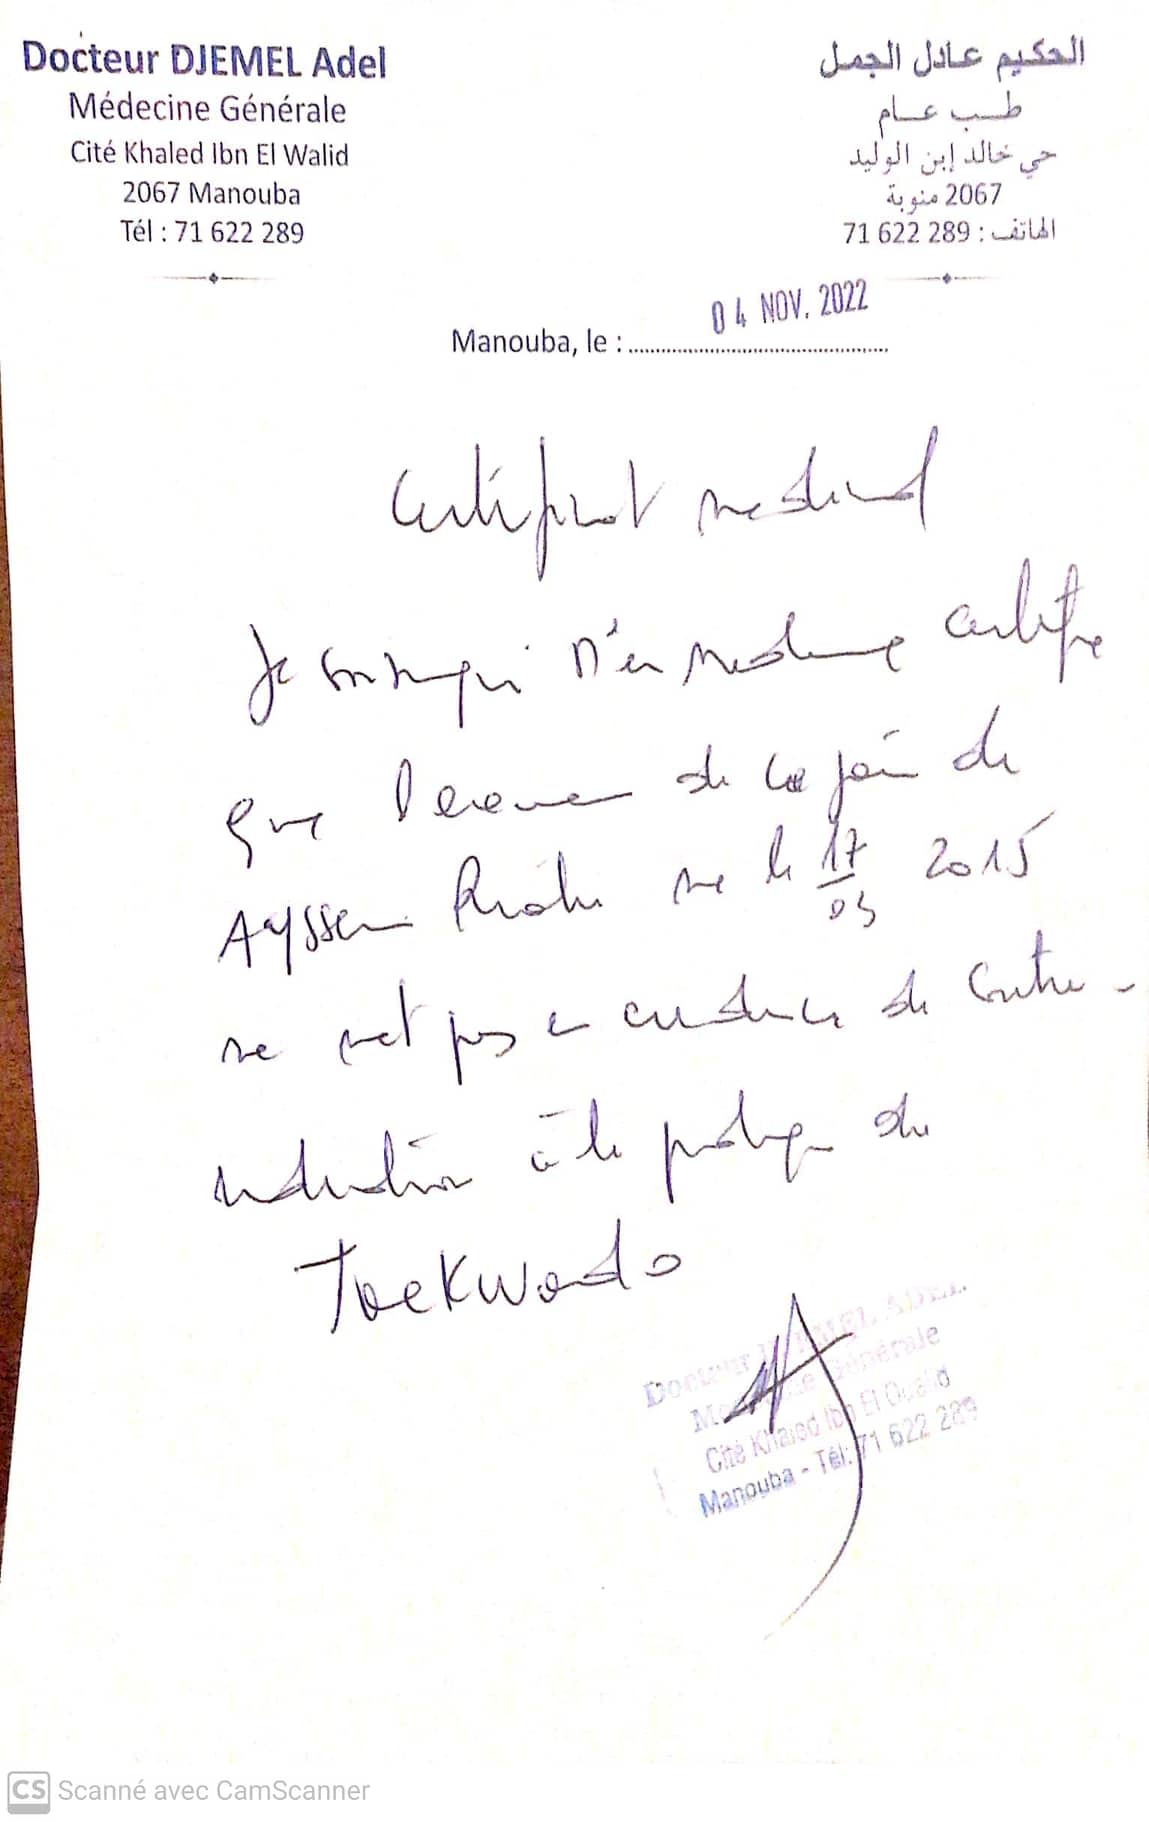 Docteur DJEMEL Adel
Médecine Générale
Cité Khaled Ibn El Walid
2067 Manouba
Tél : 71 622 289
الحكيم عادل الجمل
طب عام
حي خالد إبن الوليد
2067 منوبة
الهاتف : 71 622 289
04 NOV. 2022
Manouba, le :
Certificat medical
Je en medecine certifie
que l'examen de ce jour de
Ayssem ne le 17/03 2015
ne met pas en evidence de contre-
indication à la pratique du
Taekwondo
Docteur DJEMEL ADEL
Médecine Générale
Cité Khaled Ibn El Oualid
Manouba - Tél: 71 622 289
CS Scanné avec CamScanner